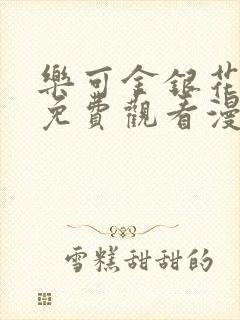 樂可金銀花
免費觀看漫
雪糕甜甜的